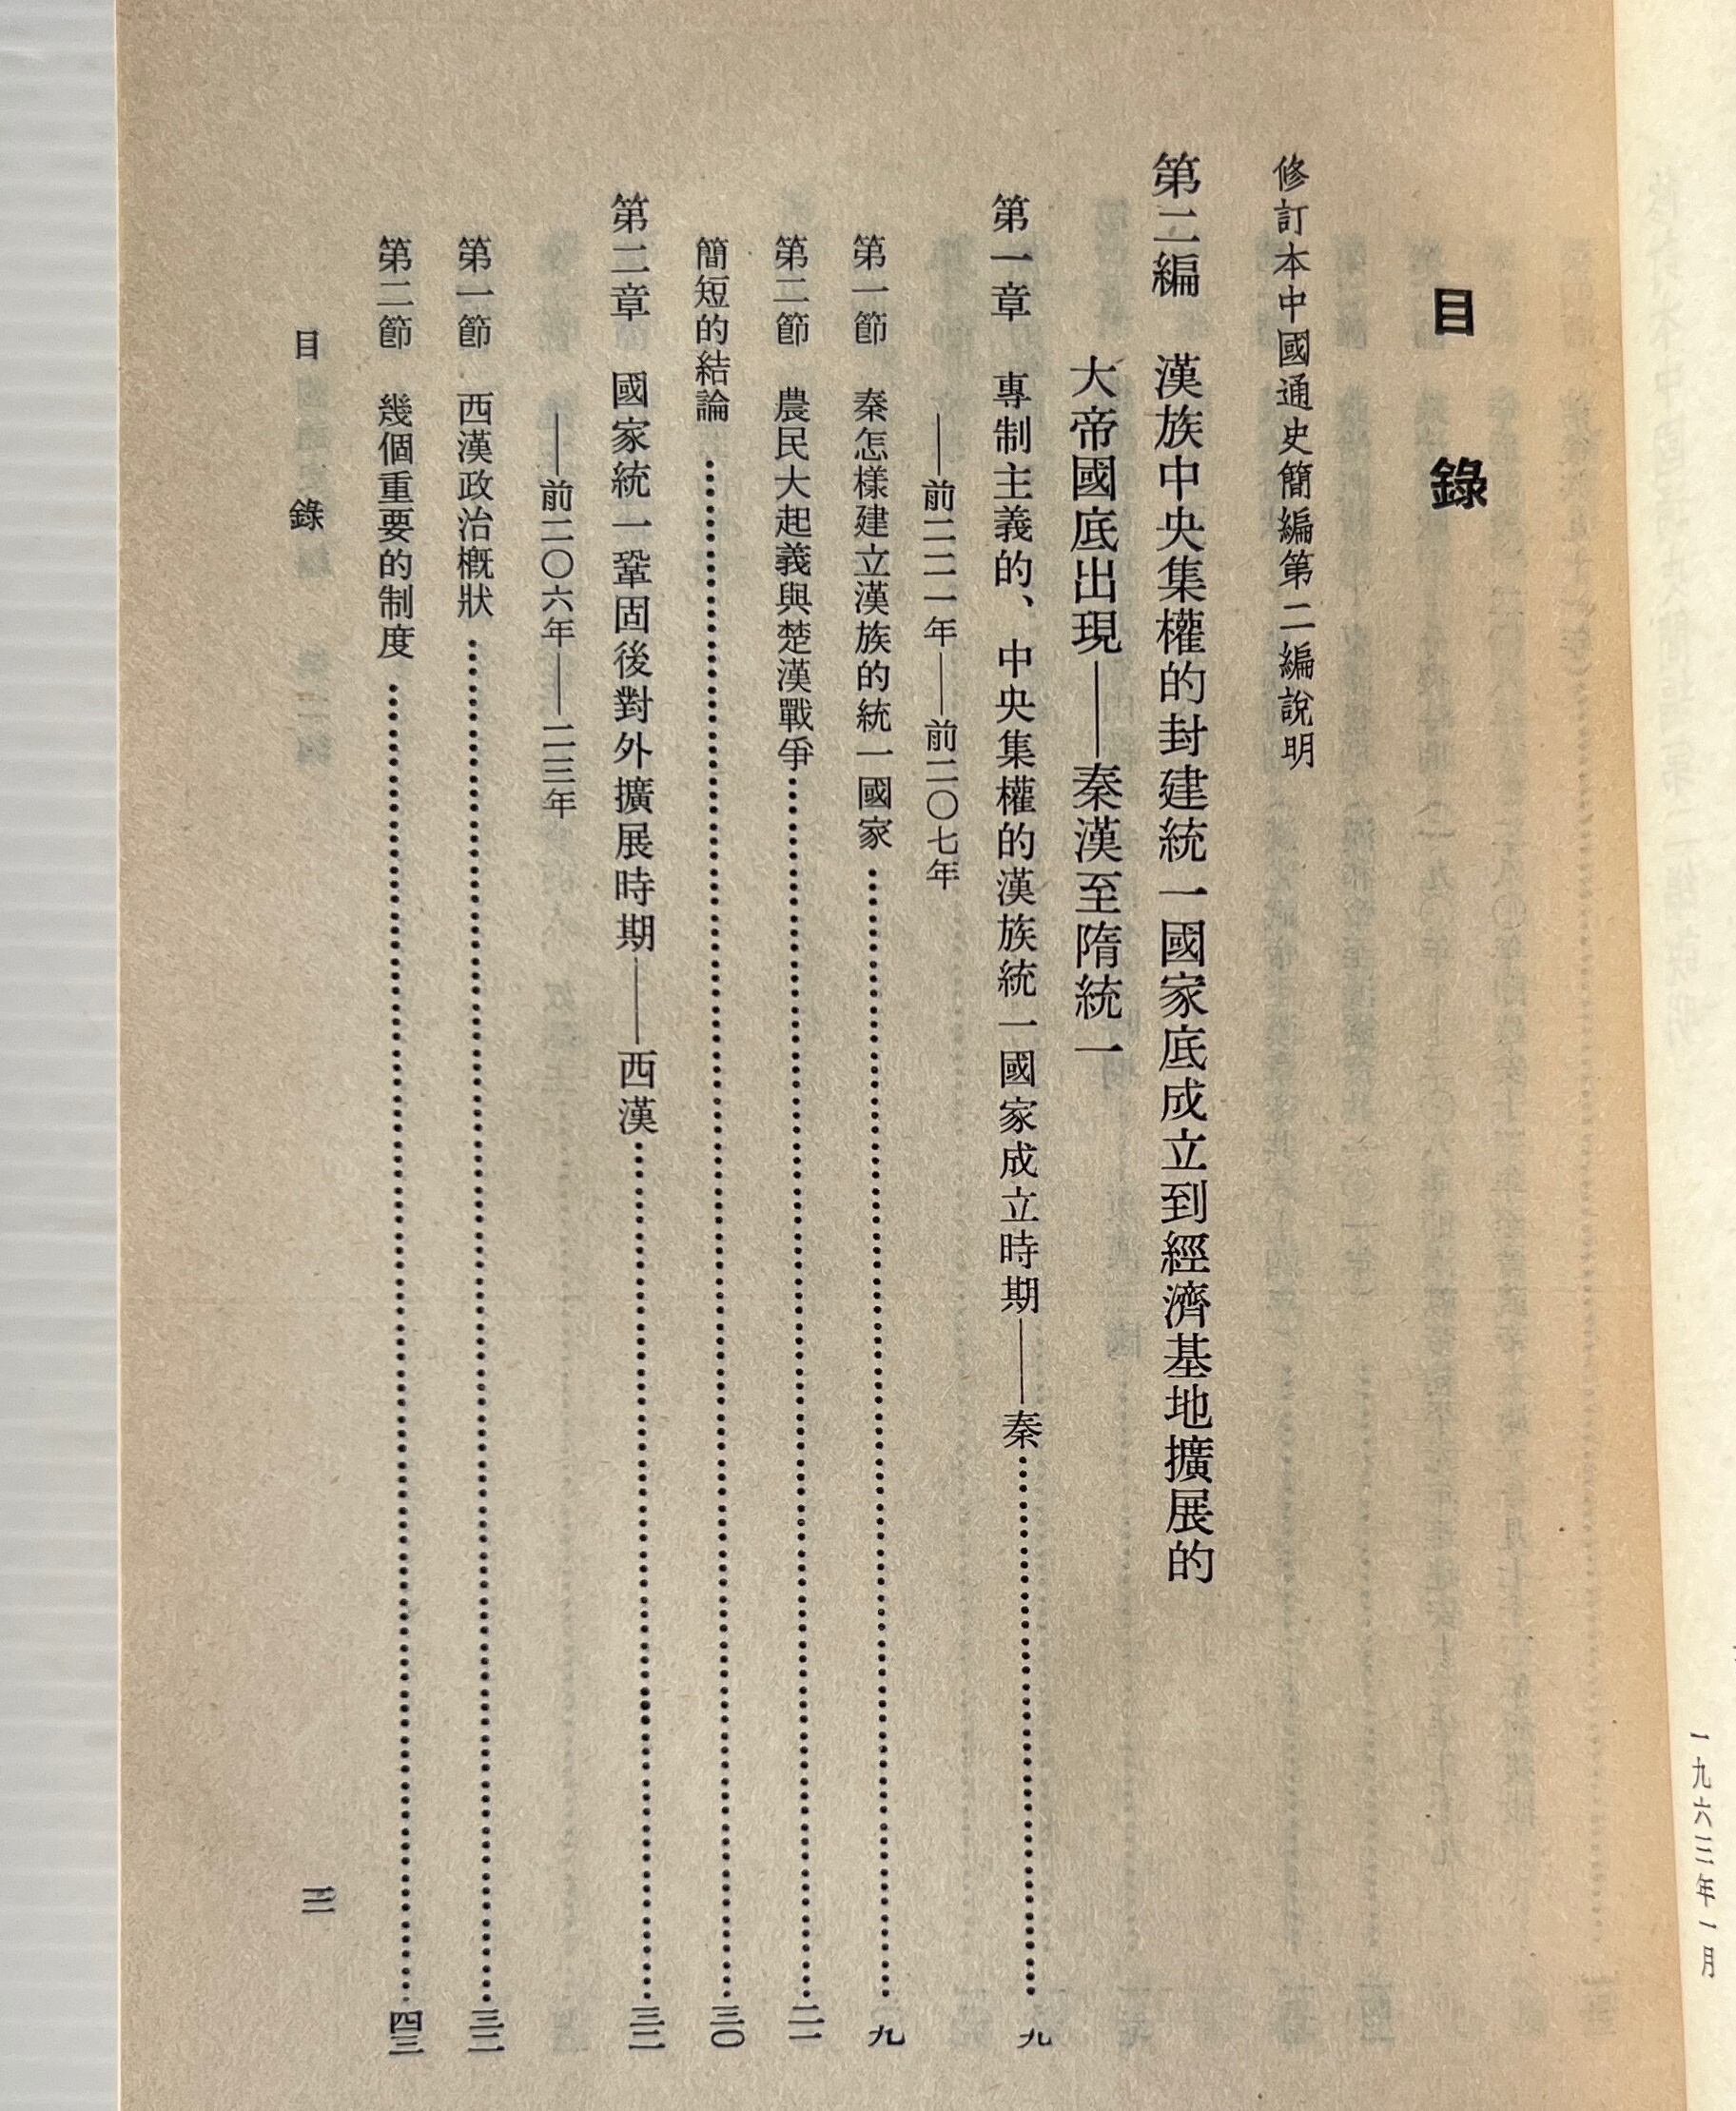 一九六三年一月
目錄
修訂本中國通史簡編第二編說明
第二編　漢族中央集權的封建統一國家底成立到經濟基地擴展的
大帝國底出現——秦漢至隋統一
第一章　專制主義的、中央集權的漢族統一國家成立時期——秦……九
——前二二一年——前二〇七年
第一節　秦怎樣建立漢族的統一國家……九
第二節　農民大起義與楚漢戰爭……二一
簡短的結論……三〇
第二章　國家統一鞏固後對外擴展時期——西漢……三二
——前二〇六年——二三年
第一節　西漢政治概狀……三二
第二節　幾個重要的制度……四三
目錄